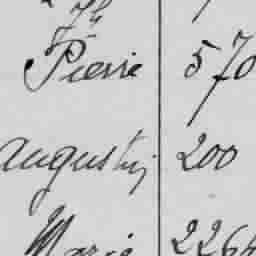 Pierre 570
Augustin 200
Marie 2264